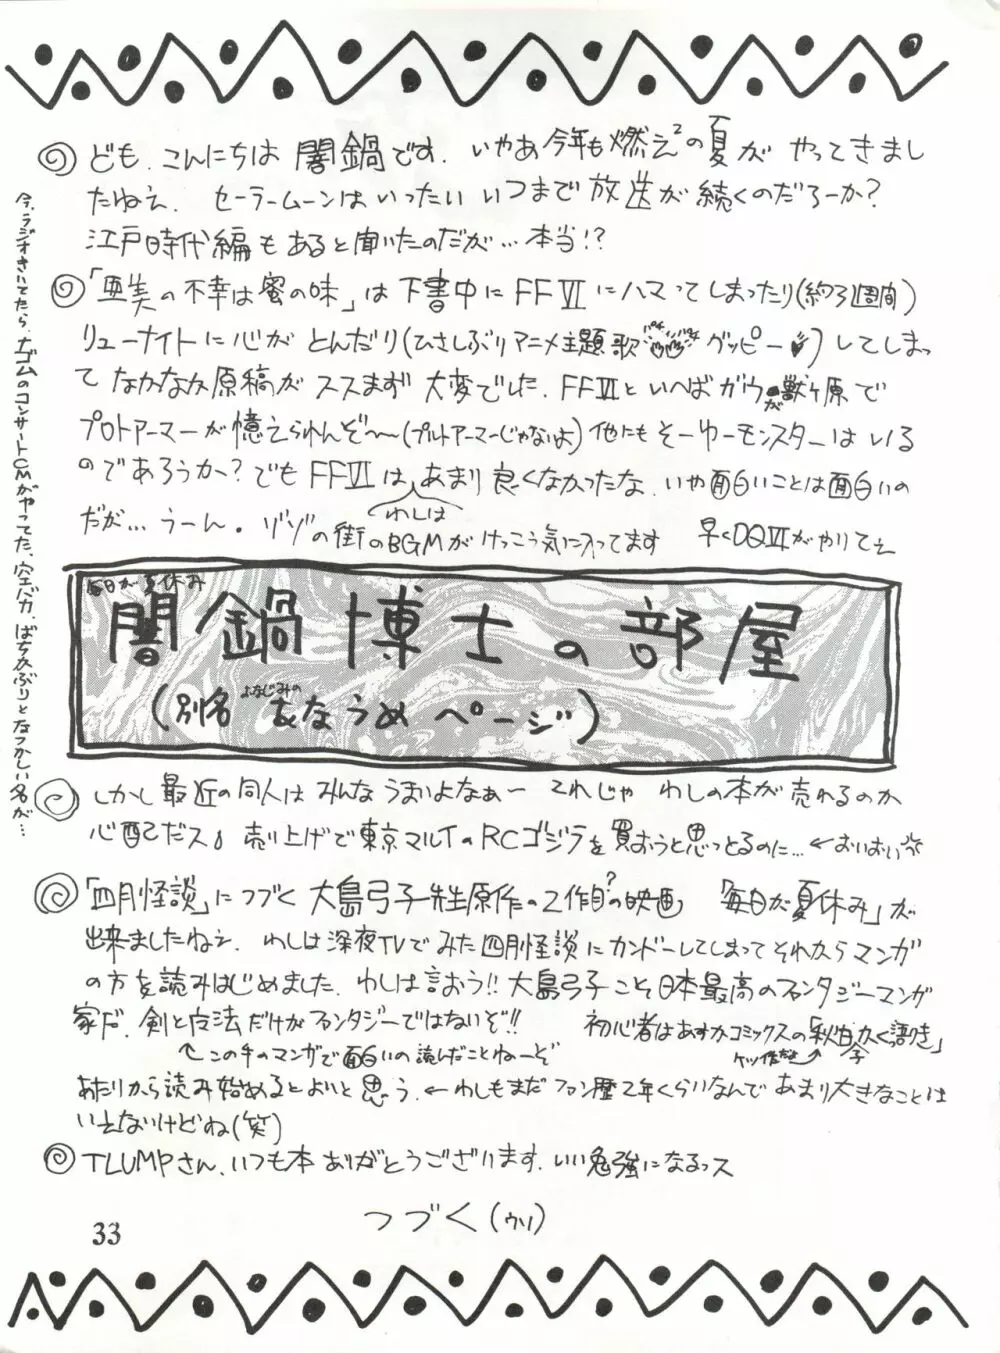 ども、こんにちは 闇鍋です. いやあ今年も燃え²の夏が やってきまし
たねえ. セーラームーンはいったい いつまで 放送が続くのだろーか?
江戸時代編もあると聞いたのだが…本当!?
「亜美の不幸は蜜の味」は下書中に FFⅥ にハマってしまったり(約3週間)
リューナイトに心が とんだり(ひさしぶりアニメ主題歌 パチパチ グッピー♥)してしまっ
て なかなか原稿が ススまず 大変でした. FFⅥといへばガウが獣ヶ原で
プロトアーマーが憶えられんぞ〜〜(プルトアーマーじゃないよ)他にもそーゆーモンスターはいる
のであろうか? でもFFⅥは、あまり良くなかったな. いや面白いことは面白いの
わしは
だが… うーん. ゾゾの街のBGMがけっこう気に入ってます 早くDQⅥがやりてえ
毎日が夏休み
闇鍋博士の部屋
(別名 よなじみの あなうめページ)
しかし最近の同人はみんなうまいよなぁー これじゃ わしの本が売れるのか
心配だス。売り上げで東京マルイのRCゴジラを買おうと思っとるのに… ←おいおい☆
「四月怪談」につづく大島弓子先生原作の2作目?の映画 「毎日が夏休み」が
出来ましたねえ. わしは深夜TVでみた四月怪談にカンドーしてしまってそれからマンガ
の方を読みはじめました. わしは言おう!! 大島弓子こそ日本最高のファンタジーマンガ
家だ. 剣と魔法だけがファンタジーではないぞ!! 初心者はあすかコミックスの「秋日子かく語りき」
↖この手のマンガで面白いの読んだことねーぞ ケッ作だよ↗
あたりから読み始めるとよいと思う. ←わしもまだ ファン歴2年くらいなんで あまり大きなことは
いえないけどね(笑)
TLUMPさん、いつも本ありがとうございます. いい勉強になるっス
つづく(ウソ)
33
今、ラジオきいてたら、ナゴムのコンサートCMがやってた、空バカ、ばちかぶりとなつかしい名が…